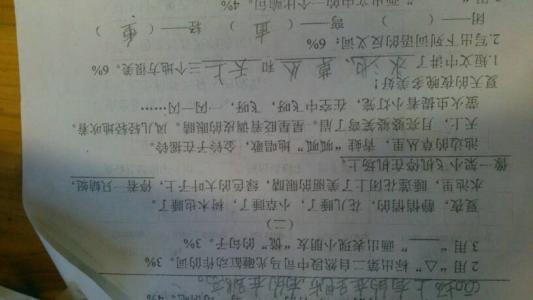 2 用“△”标出第二自然段中司马光砸缸动作的词。3%
3 用“——”画出表现小朋友“慌”的句子。3%
(二)
夏夜，静悄悄的，花儿睡了，小草睡了，树木也睡了。
水池里，睡莲花闭上了美丽的眼睛，绿色的大叶子上，停着一只蜻蜓，
像一架小飞机停在机场上。
池边的草丛里，青蛙“呱呱”地唱歌，金铃子在摇铃。
天上，月亮婆婆笑弯了眉。星星眨着调皮的眼睛。风儿轻轻地吹着。
萤火虫提着小灯笼，在空中飞呀，飞呀，一闪一闪……
夏天的夜晚多美好！
1.短文中讲了 水池、 草丛 和 天上 三个地方很美，6%
2.写出下列词语的反义词：6%
闭——（ ） 弯——（直） 轻——（重）
画出文中的一个比喻句。4%